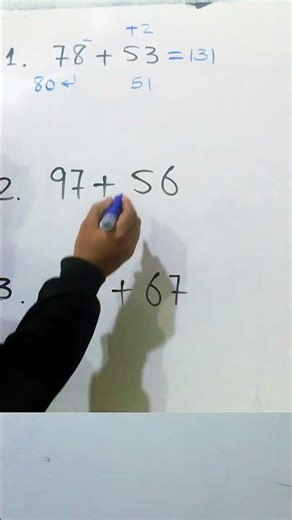 +2
1. 78 + 53 = 131
80 ↲ 51
2. 97 + 56
3. + 67